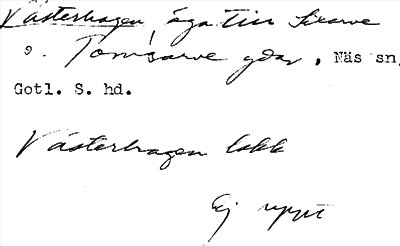 Västerhagen, äga till Sixarve
o. Tomsarve gdar, Näs sn,
Gotl. S. hd.
Västerhagen lokk
Ej uppt